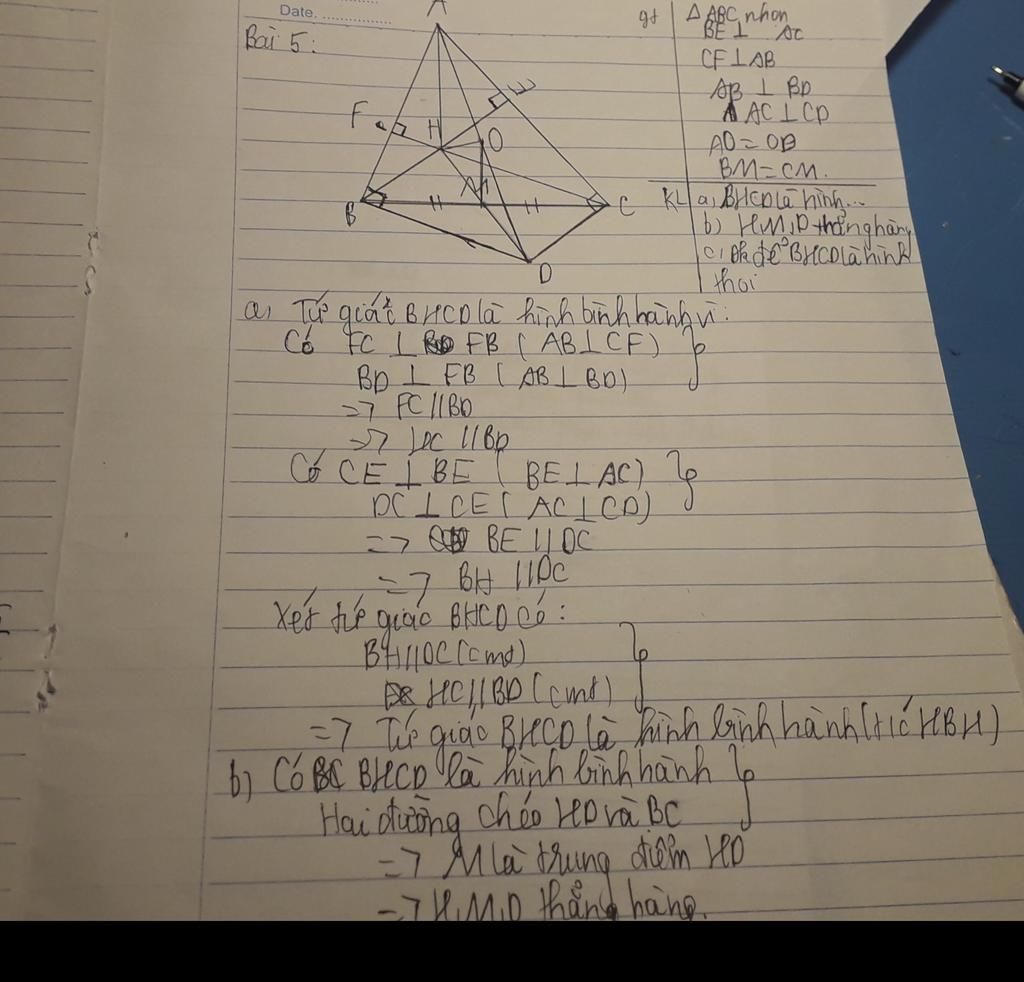 Date.
Bài 5:
A
F
E
H
O
B
M
C
D
gt
Δ ABC nhọn
BE ⊥ AC
CF ⊥ AB
AB ⊥ BD
AC ⊥ CD
AO = OD
BM = CM.
KL a, BHCD là hình...
b) H,M,D thẳng hàng
c, đk để BHCD là hình
thoi
a, Tứ giác BHCD là hình bình hành vì:
Có FC ⊥ FB ( AB ⊥ CF)
BD ⊥ FB ( AB ⊥ BD)
=> FC // BD
=> HC // BD
Có CE ⊥ BE ( BE ⊥ AC)
DC ⊥ CE ( AC ⊥ CD)
=> BE // DC
=> BH // DC
Xét tứ giác BHCD có:
BH // DC (cmt)
HC // BD (cmt)
=> Tứ giác BHCD là hình bình hành (t/c HBH)
b) Có BHCD là hình bình hành
Hai đường chéo HD và BC
=> M là trung điểm HD
=> H,M,D thẳng hàng.